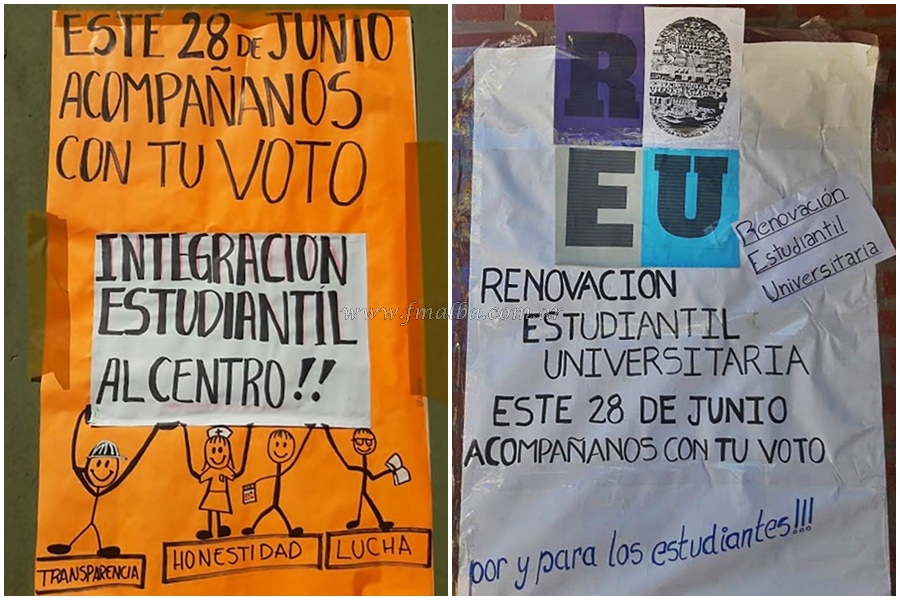 ESTE 28 DE JUNIO
ACOMPAÑANOS
CON TU VOTO
INTEGRACION
ESTUDIANTIL
AL CENTRO!!
TRANSPARENCIA
HONESTIDAD
LUCHA
R
E U
Renovación
Estudiantil
Universitaria
RENOVACION
ESTUDIANTIL
UNIVERSITARIA
ESTE 28 DE JUNIO
ACOMPAÑANOS CON TU VOTO
por y para los estudiantes!!!
www.fmalba.com.ar